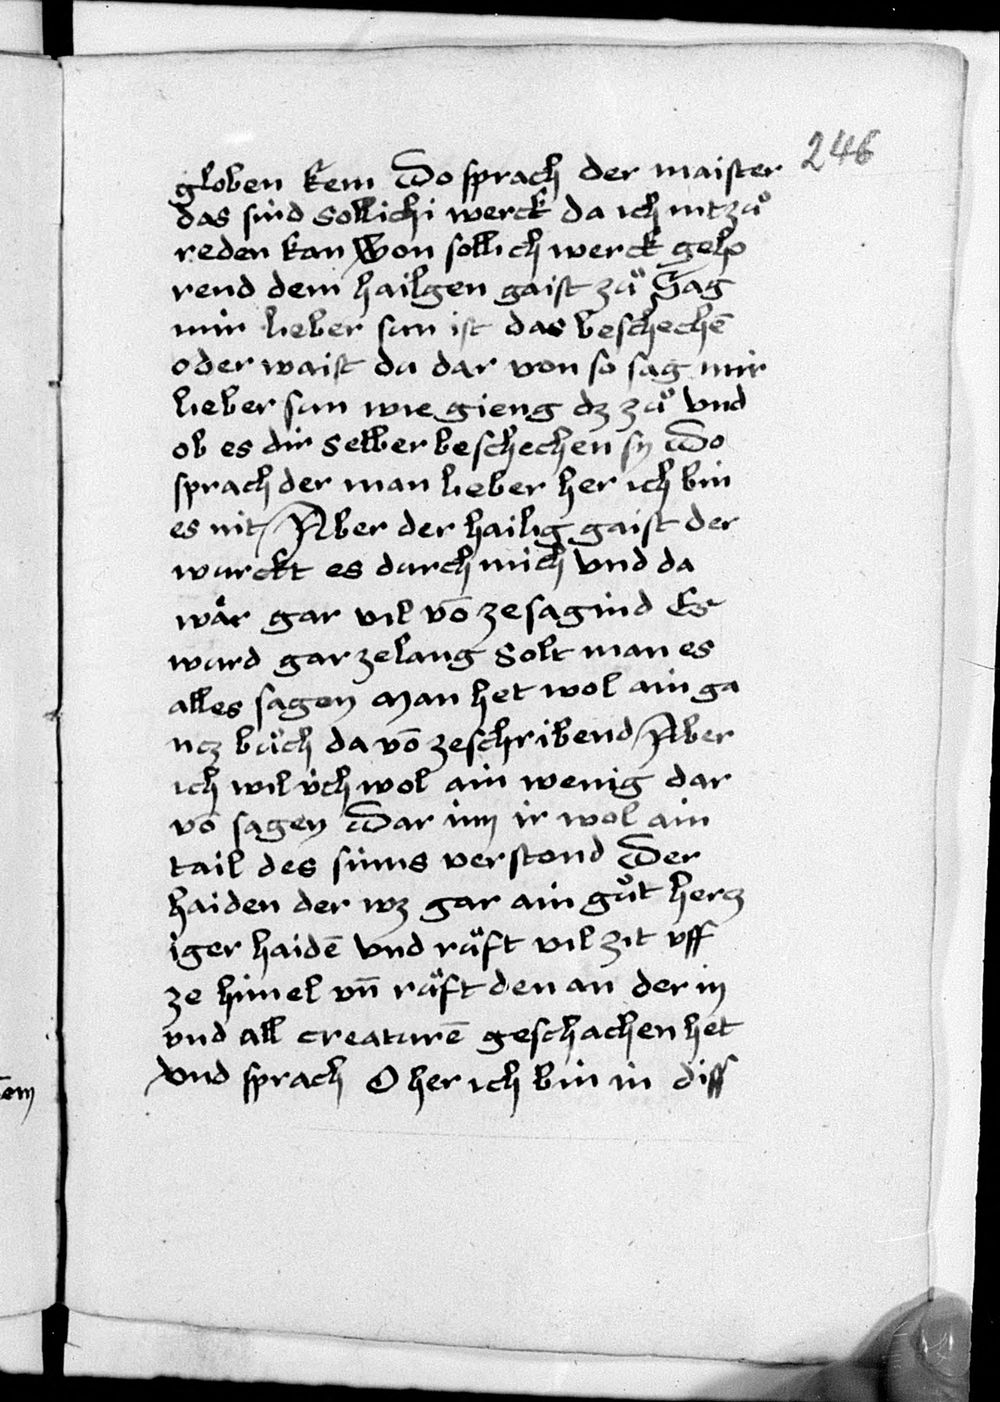 246
globen kem Do sprach der maister
das sind sollichi werck da ich nit zuͦ
reden kan Won sollich werck geho
rend dem hailgen gaist zuͦ Sag
mir lieber sun ist das beschechē
oder waist du dar von so sag mir
lieber sun wie gieng dz zuͦ vnd
ob es dir selber beschechen sy Do
sprach der man lieber her ich bin
es nit / Aber der hailig gaist der
wurckt es durch mich vnd da
wår gar vil vō ze sagind Es
wurd gar ze lang Solt man es
alles sagen Man het wol ain ga
ncz buͦch da vō ze schribend / Aber
ich wil üch wol ain wenig dar
vō sagen Dar inn ir wol ain
tail des sinns verstond Der
haiden der wz gar ain guͦt hercz
iger haidē vnd ruͤft vil zit vff
ze himel vn̄ ruͤft den an der in
vnd all creaturē geschachen het
Vnd sprach O her ich bin in diss
em